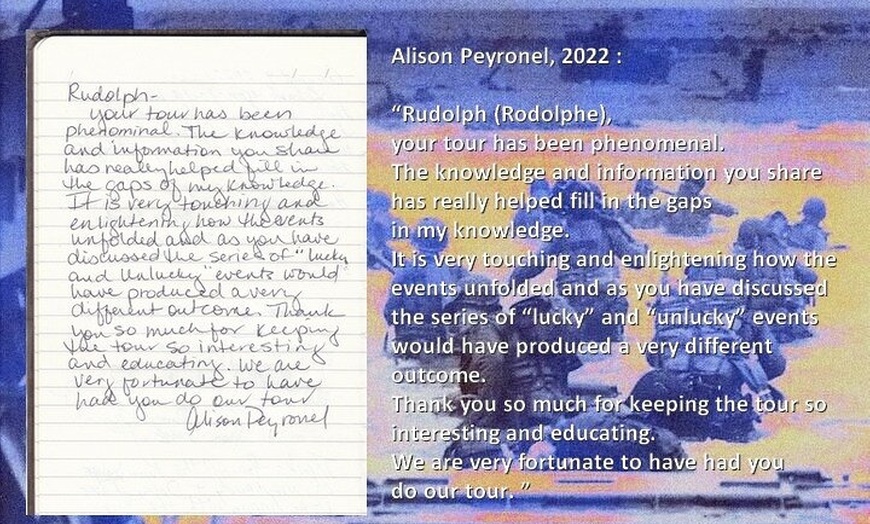 Rudolph-
your tour has been
phenominal. The knowledge
and information you share
has really helped fill in
the gaps of my knowledge.
It is very touching and
enlightening how the events
unfolded and as you have
discussed the series of "lucky
and unlucky" events would
have produced a very
different outcome. Thank
you so much for keeping
the tour so interesting
and educating. We are
very fortunate to have
had you do our tour
Alison Peyronel
Alison Peyronel, 2022 :
“Rudolph (Rodolphe),
your tour has been phenomenal.
The knowledge and information you share
has really helped fill in the gaps
in my knowledge.
It is very touching and enlightening how the
events unfolded and as you have discussed
the series of “lucky” and “unlucky” events
would have produced a very different
outcome.
Thank you so much for keeping the tour so
interesting and educating.
We are very fortunate to have had you
do our tour. ”